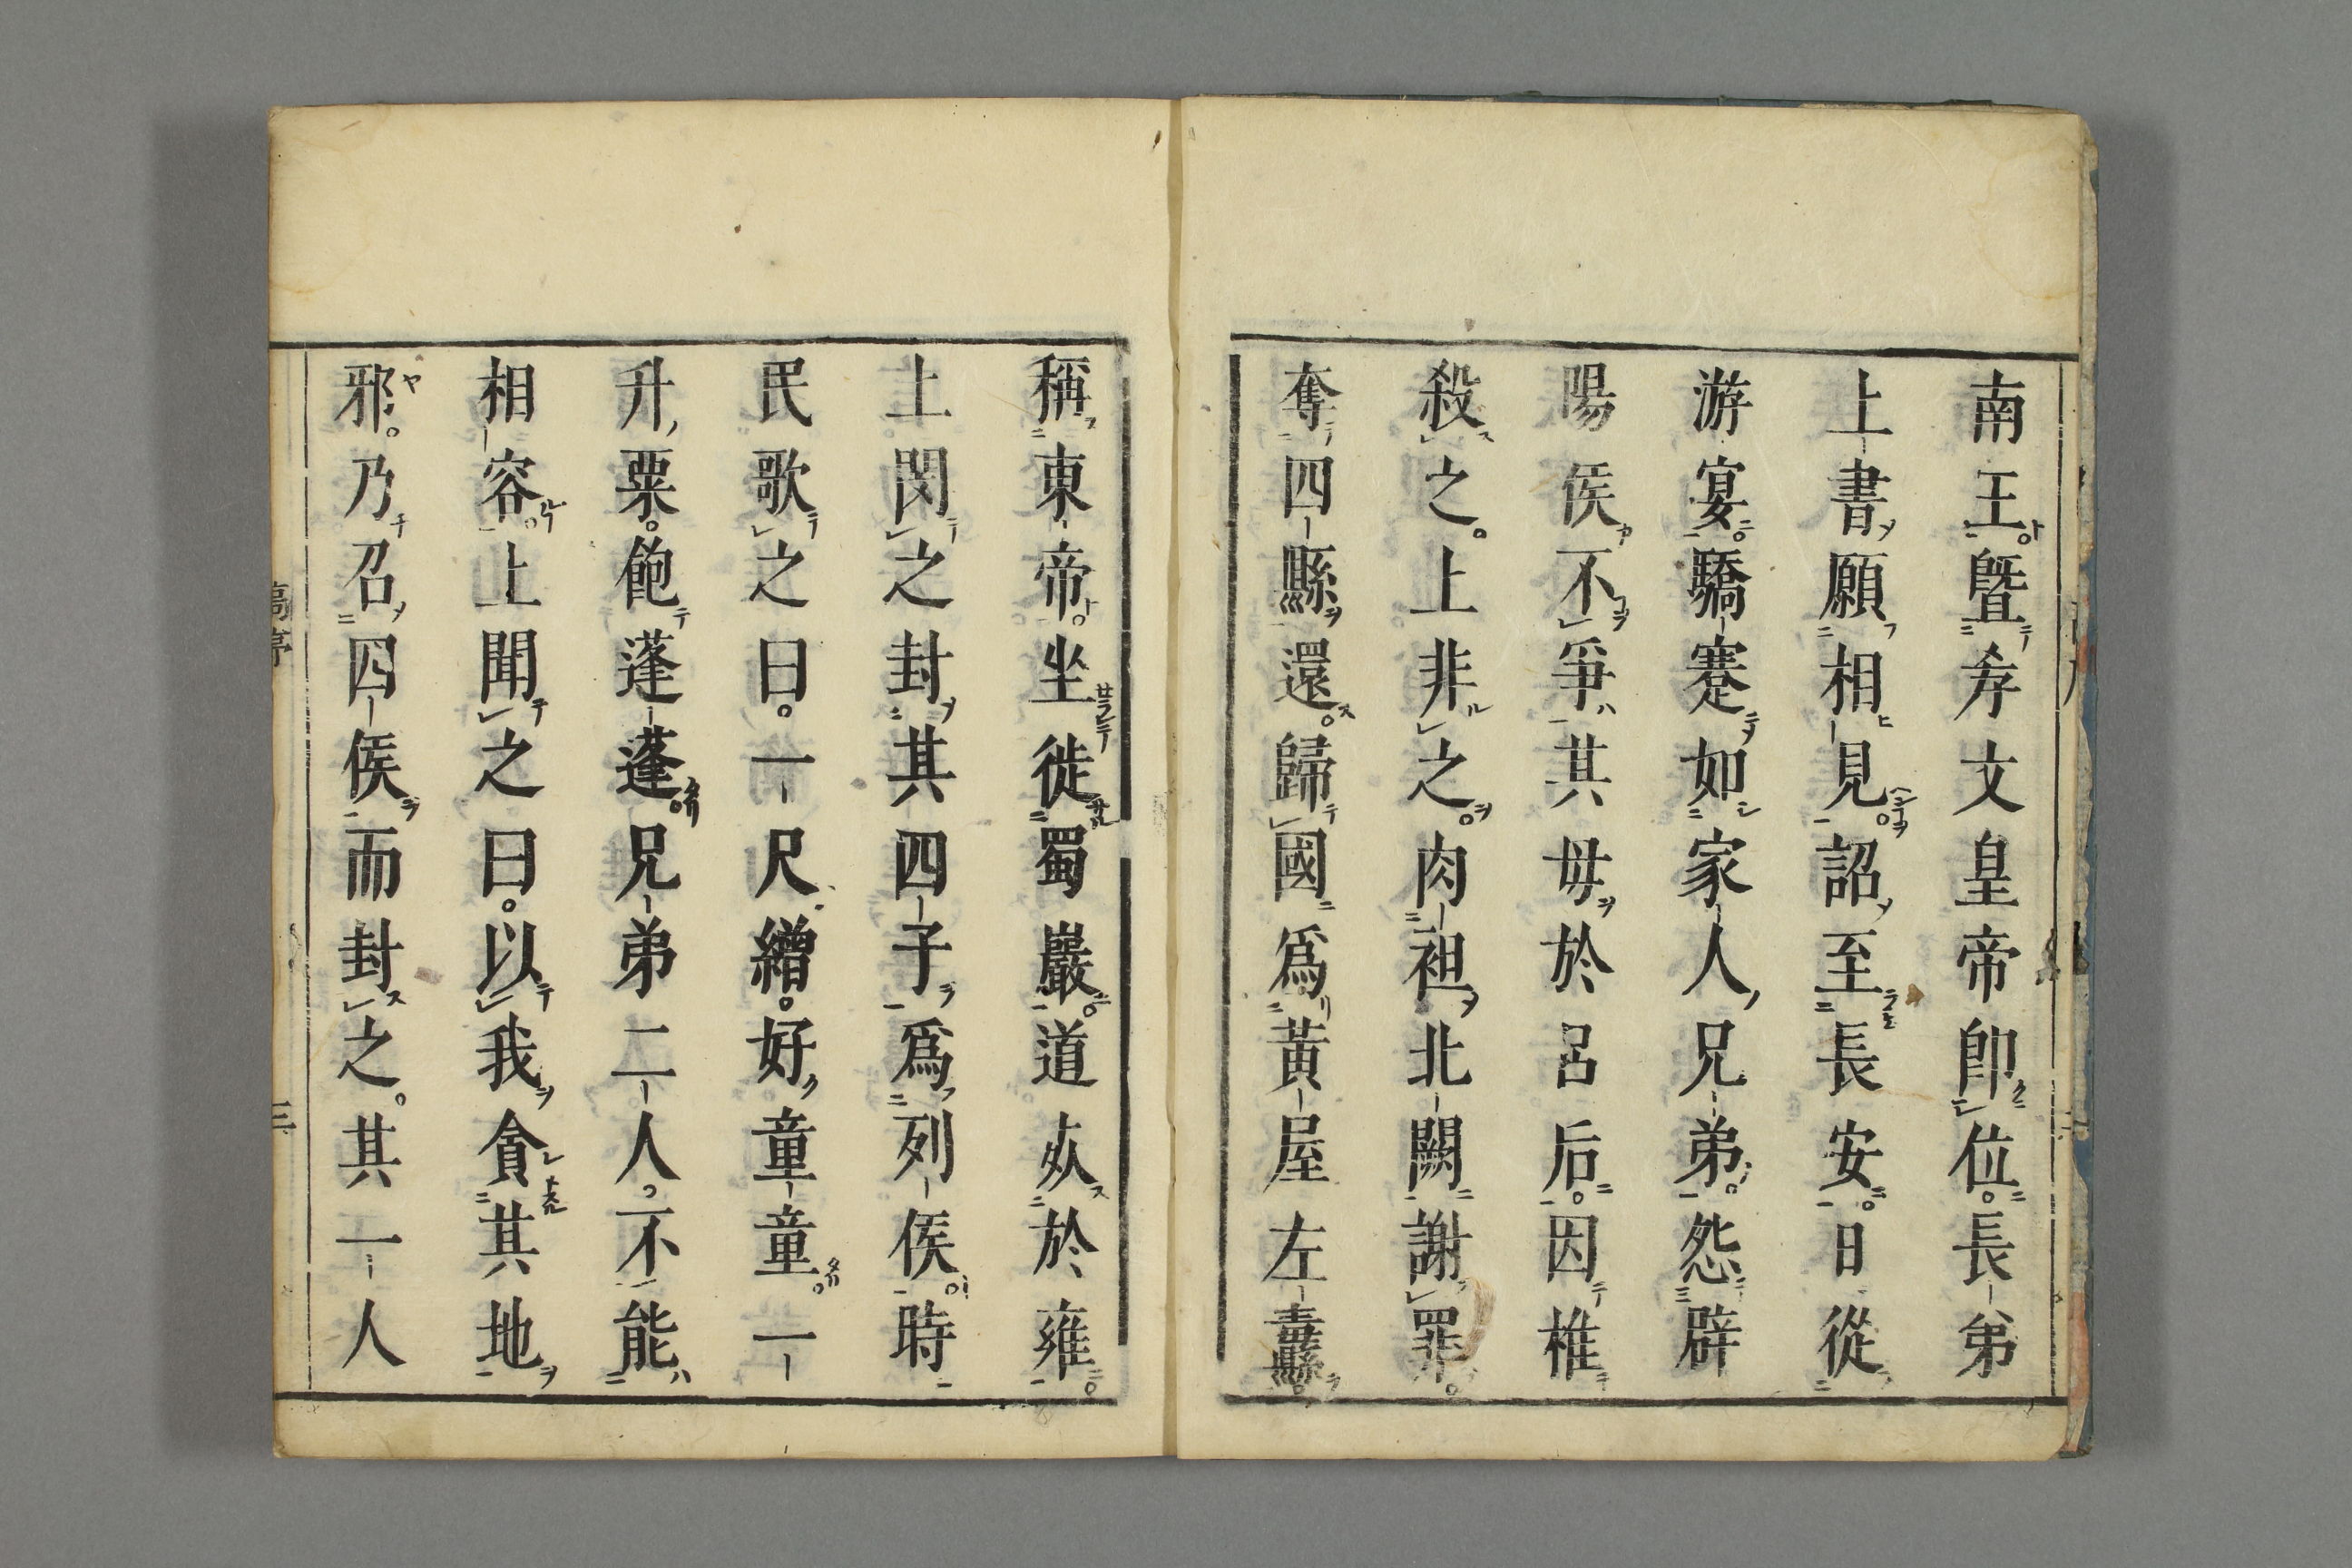 南王曁孝文皇帝卽位長弟
上書願相見詔至長安日從
游宴驕蹇如家人兄弟怨辟
陽侯不爭其母於呂后因椎
殺之上非之肉袒北闕謝罪
奪四縣還歸國爲黃屋左纛
稱東帝坐徙蜀嚴道死於雍
上閔之封其四子爲列侯時
民歌之曰一尺繒好童童一
升粟飽蓬蓬兄弟二人不能
相容上聞之曰以我貪其地
邪乃召四侯而封之其一人
三